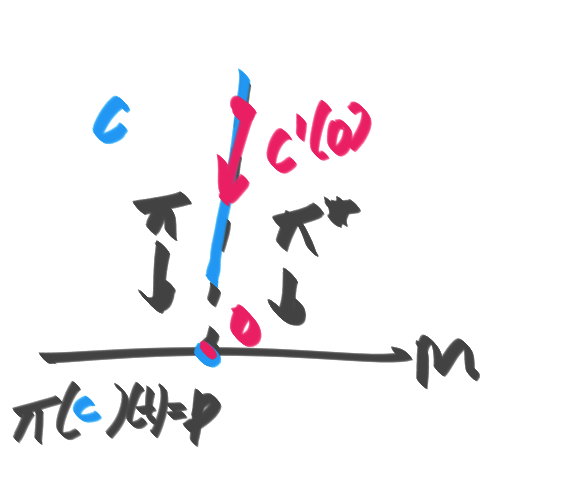 C
C'(0)
π
π*
0
M
π(C)(t)=p